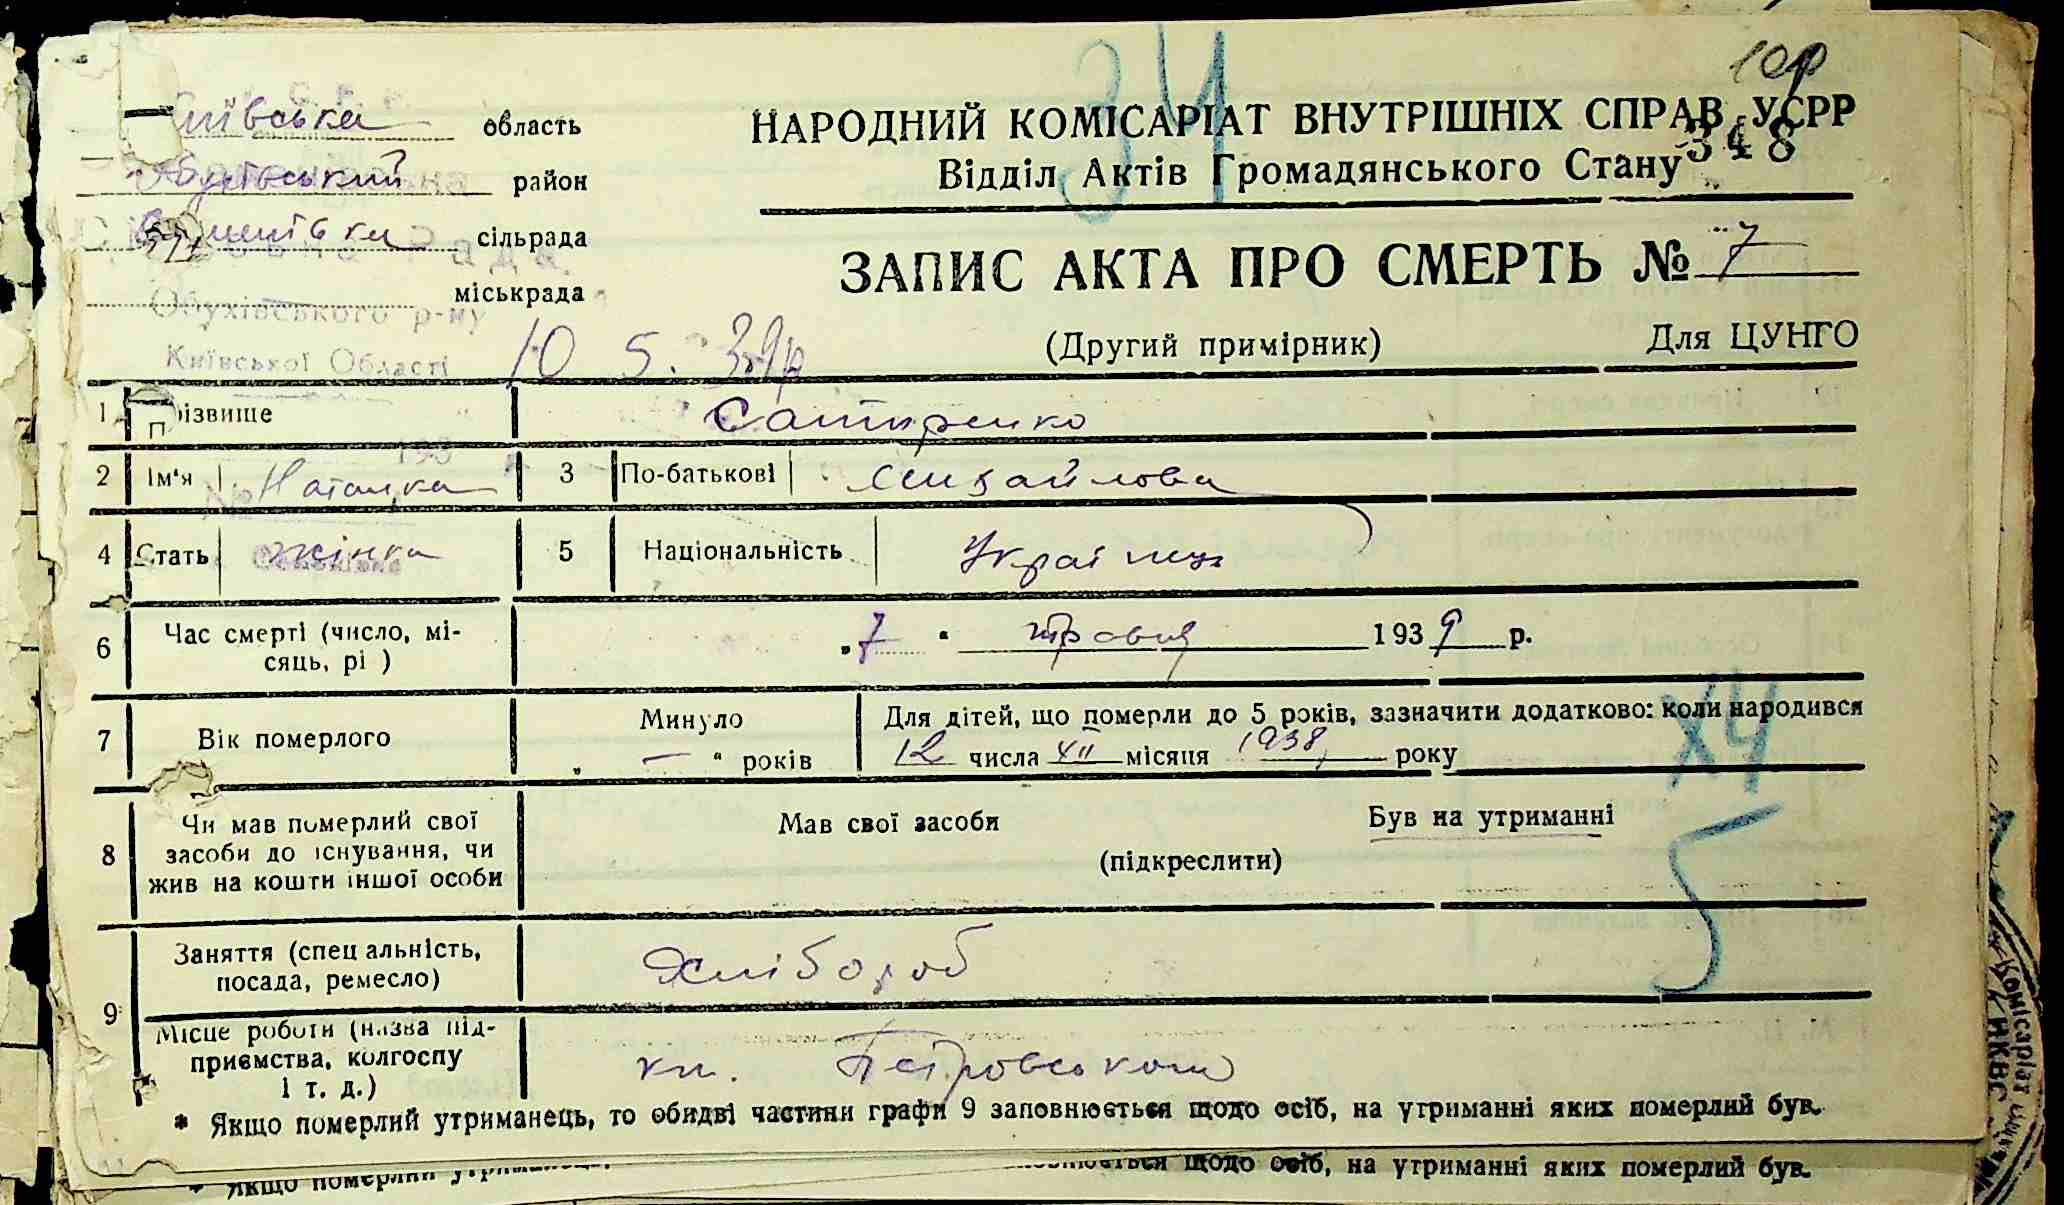 34
10р
Київська область
Обухівський район
сільрада
міськрада
Обухівського р-ну
Київської Області
НАРОДНИЙ КОМІСАРІАТ ВНУТРІШНІХ СПРАВ УСРР
Відділ Актів Громадянського Стану
348
ЗАПИС АКТА ПРО СМЕРТЬ № 7
(Другий примірник) Для ЦУНГО
10 5. 39р
1 Прізвище Сатиренко
2 Ім'я Наталка 3 По-батькові Михайлова
4 Стать жінка 5 Національність Українц
6 Час смерті (число, мі-
сяць, рі ) „7" травня 1939 р.
7 Вік померлого Минуло „ — " років
Для дітей, що померли до 5 років, зазначити додатково: коли народився
12 числа XII місяця 1938 року
Х4
5
8 Чи мав померлий свої
засоби до існування, чи
жив на кошти іншої особи
Мав свої засоби Був на утриманні
(підкреслити)
9 Заняття (спец альність,
посада, ремесло) Хлібороб
Місце роботи (назва під-
приємства, колгоспу
і т. д.) Петровського
* Якщо померлий утриманець, то обидві частини графи 9 заповнюється щодо осіб, на утриманні яких померлий був.
* Якщо померлий щодо осіб, на утриманні яких померлий був.